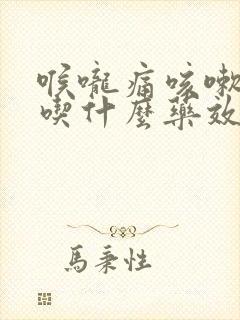 喉嚨痛咳嗽
喫什麼藥效
馬秉性